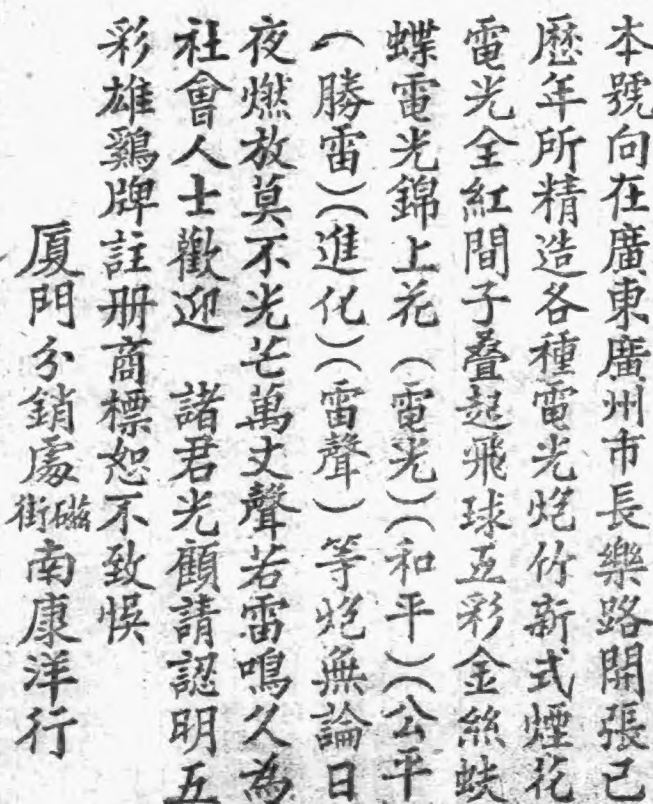 本號向在廣東廣州市長樂路開張已
歷年所精造各種電光炮竹新式煙花
電光全紅間子叠起飛球五彩金絲蛱
蝶電光錦上花（電光）（和平）（公平
（勝雷）（進化）（雷聲）等炮無論日
夜燃放莫不光芒萬丈聲若雷鳴久為
社會人士歡迎　諸君光顧請認明五
彩雄鷄牌註册商標恕不致悞
厦門分銷處磁街南康洋行